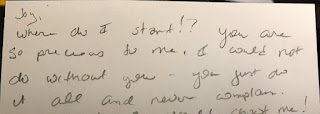 Joy,
Where do I start!? You are
so precious to me. I could not
do without you - you just do
it all and never complain.
me!